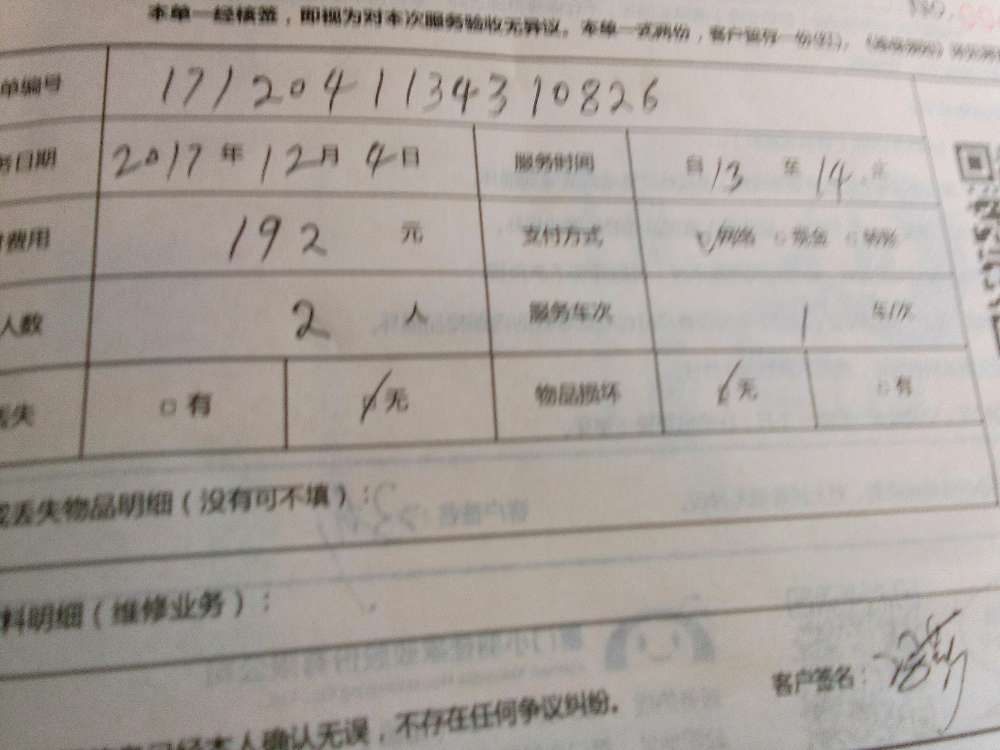 本单一经核签，即视为对本次服务验收无异议。本单一式两份，客户留存一份
单编号 1712041134310826
务日期 2017年12月4日 服务时间 自13至14
费用 192元 支付方式 网络 现金 转账
人数 2人 服务车次 1车/次
丢失 □有 无 物品损坏 无 □有
或丢失物品明细（没有可不填）：
料明细（维修业务）：
客户签名：
已经本人确认无误，不存在任何争议纠纷。